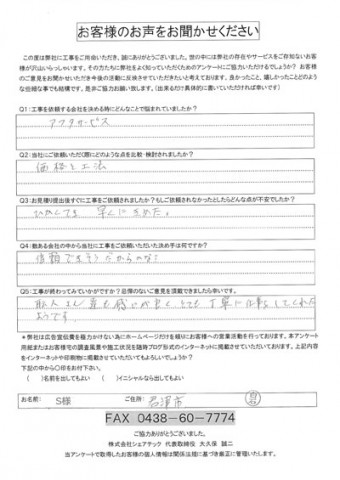 お客様のお声をお聞かせください
この度は弊社に工事をご用命いただき、誠にありがとうございました。世の中には弊社の存在やサービスをご存知ないお客
様が沢山いらっしゃいます。その方たちに弊社をよく知っていただくためのアンケートにご協力いただけるでしょうか? お客様
のご意見をお聞かせいただき今後の活動に反映させていただきたいと考えております。良かったこと、嬉しかったことどのよう
な些細な事でも結構です。是非ご協力お願い致します。(出来るだけ具体的に書いていただければ幸いです)
Q1:工事を依頼する会社を決める時にどんなことで悩まれていましたか?
アフタサービス
Q2:当社にご依頼いただく際にどのような点を比較・検討されましたか?
価格と工法
Q3:お見積り提出後すぐに工事をご依頼されましたか?もしご依頼されなかったとしたらどんな点が不安でしたか?
早くにきめた。
Q4:数ある会社の中から当社に工事をご依頼いただいた決め手は何ですか?
信頼できそうだからかな?
Q5:工事が終わってみていかがですか?忌憚のないご意見を頂戴できましたら幸いです。
職人さん達も感じが良く、とても丁寧に仕事をしてくれた
ようです。
*弊社は広告宣伝費を極力かけない為にホームページだけを頼りにお客様への営業活動を行っております。本アンケート
用紙またお客様宅の調査風景や施工状況を随時ブログ形式でインターネットに掲載させていただいております。上記内容
をインターネットや印刷物に掲載させていただいてもよろしいでしょうか?
下記の中から〇印をお付下さい。
( )名前を出してもよい ( )イニシャルなら出してもよい
お名前: S様 ご住所: 君津市
FAX 0438-60-7774
ご協力ありがとうございました。
株式会社シェアテック 代表取締役 大久保 誠二
当アンケートで取得したお客様の個人情報は関係法規に基づき厳正に管理いたします。